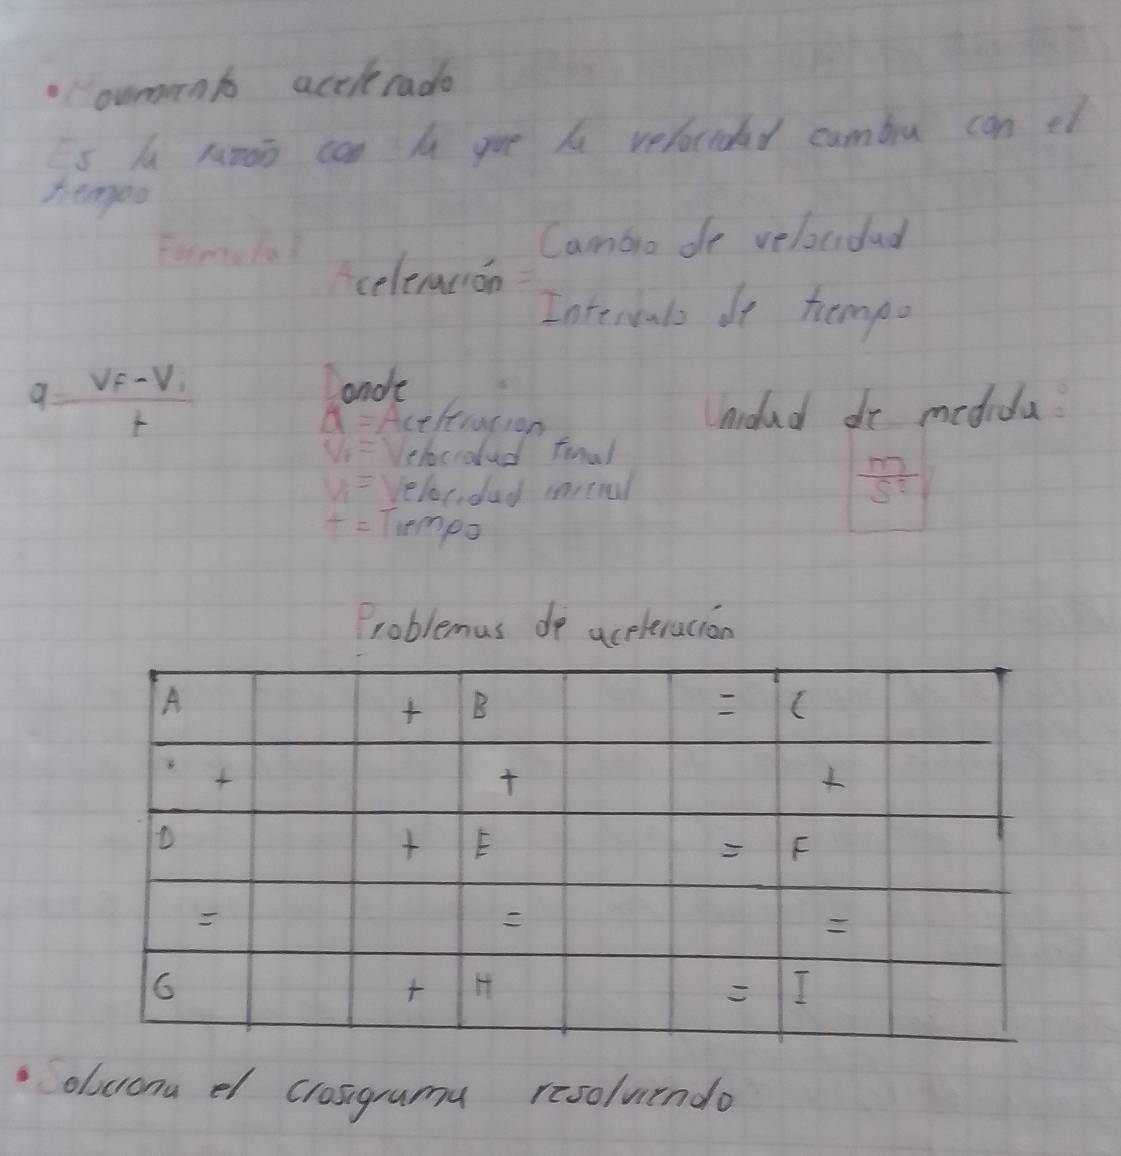 • Movimiento acelerado
Es la razón con la que la velocidad cambia con el
tiempo
Formula: Cambio de velocidad
Aceleración =
Intervalo de tiempo
a = VF - Vi
t
Donde
A = Aceleracion
VF = Velocidad final
Vi = Velocidad inicial
t = Tiempo
Unidad de medida:
m
s²
Problemas de aceleración
A + B = C
+ + +
D + E = F
= = =
G + H = I
• Soluciona el crosigrama resolviendo